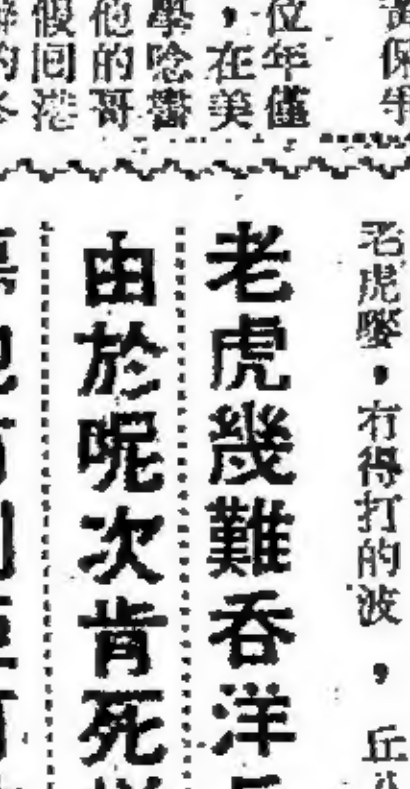 保
位年僅
，在美
學唸書
他的哥
假回港
的
老虎，冇得打的波，丘
老虎幾難吞洋
由於呢次肯死